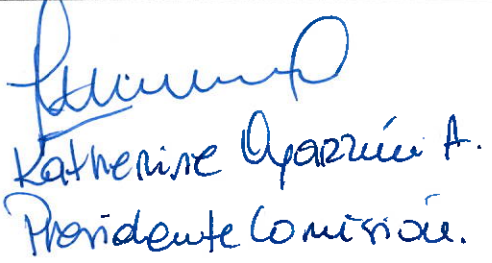 Katherine Oyarzún A.
Presidente Comisión.